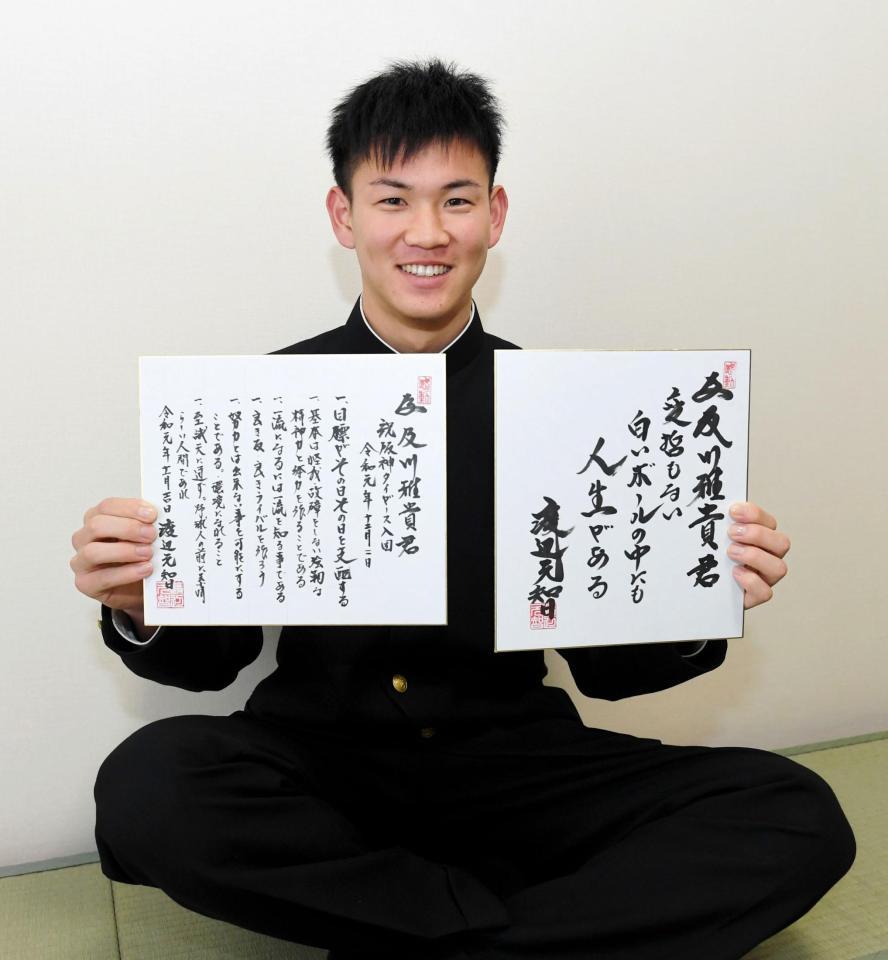 為及川雅貴君
祝阪神タイガース入団
令和元年十二月二日
一、目標がその日その日を支配する
一、基本は怪我故障をしない強靭な
精神力と体力を作ることである
一、一流になるには一流を知る事である
一、良き友 良きライバルを作ろう
一、努力とは出来ない事を可能にする
ことである。環境になれること
一、至誠天に通ず。野球人の前に素晴
らしい人間であれ
令和元年十二月吉日 渡辺元智
感動
為及川雅貴君
変哲もない
白いボールの中にも
人生がある
渡辺元智
感動